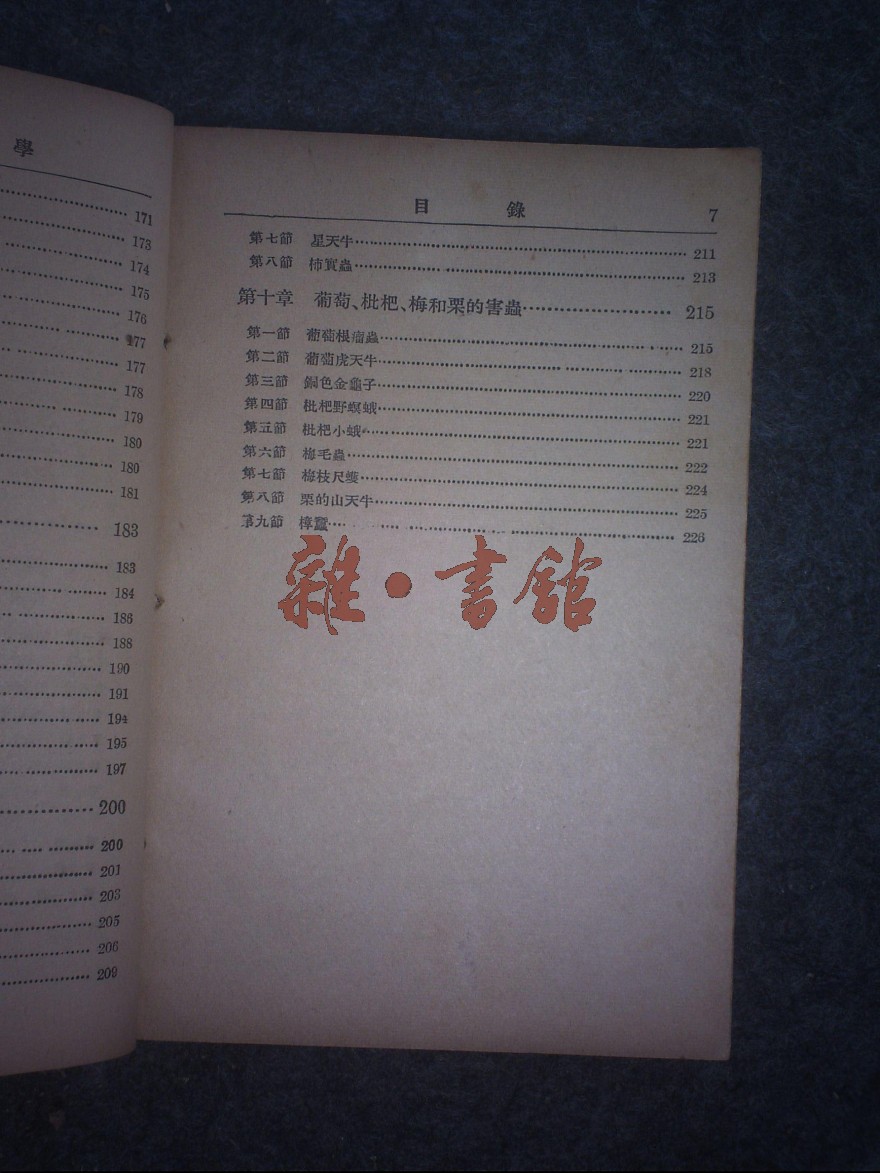 害
171
173
174
175
176
177
177
178
179
180
180
181
183
183
184
186
188
190
191
194
195
197
200
200
201
203
205
206
209
目 錄 7
第七節 星天牛 211
第八節 柿實蟲 213
第十章 葡萄、枇杷、梅和栗的害蟲 215
第一節 葡萄根瘤蟲 215
第二節 葡萄虎天牛 218
第三節 銅色金龜子 220
第四節 枇杷野螟蛾 221
第五節 枇杷小蛾 221
第六節 梅毛蟲 222
第七節 梅枝尺蠖 224
第八節 栗的山天牛 225
第九節 樟蠶 226
雜·書館